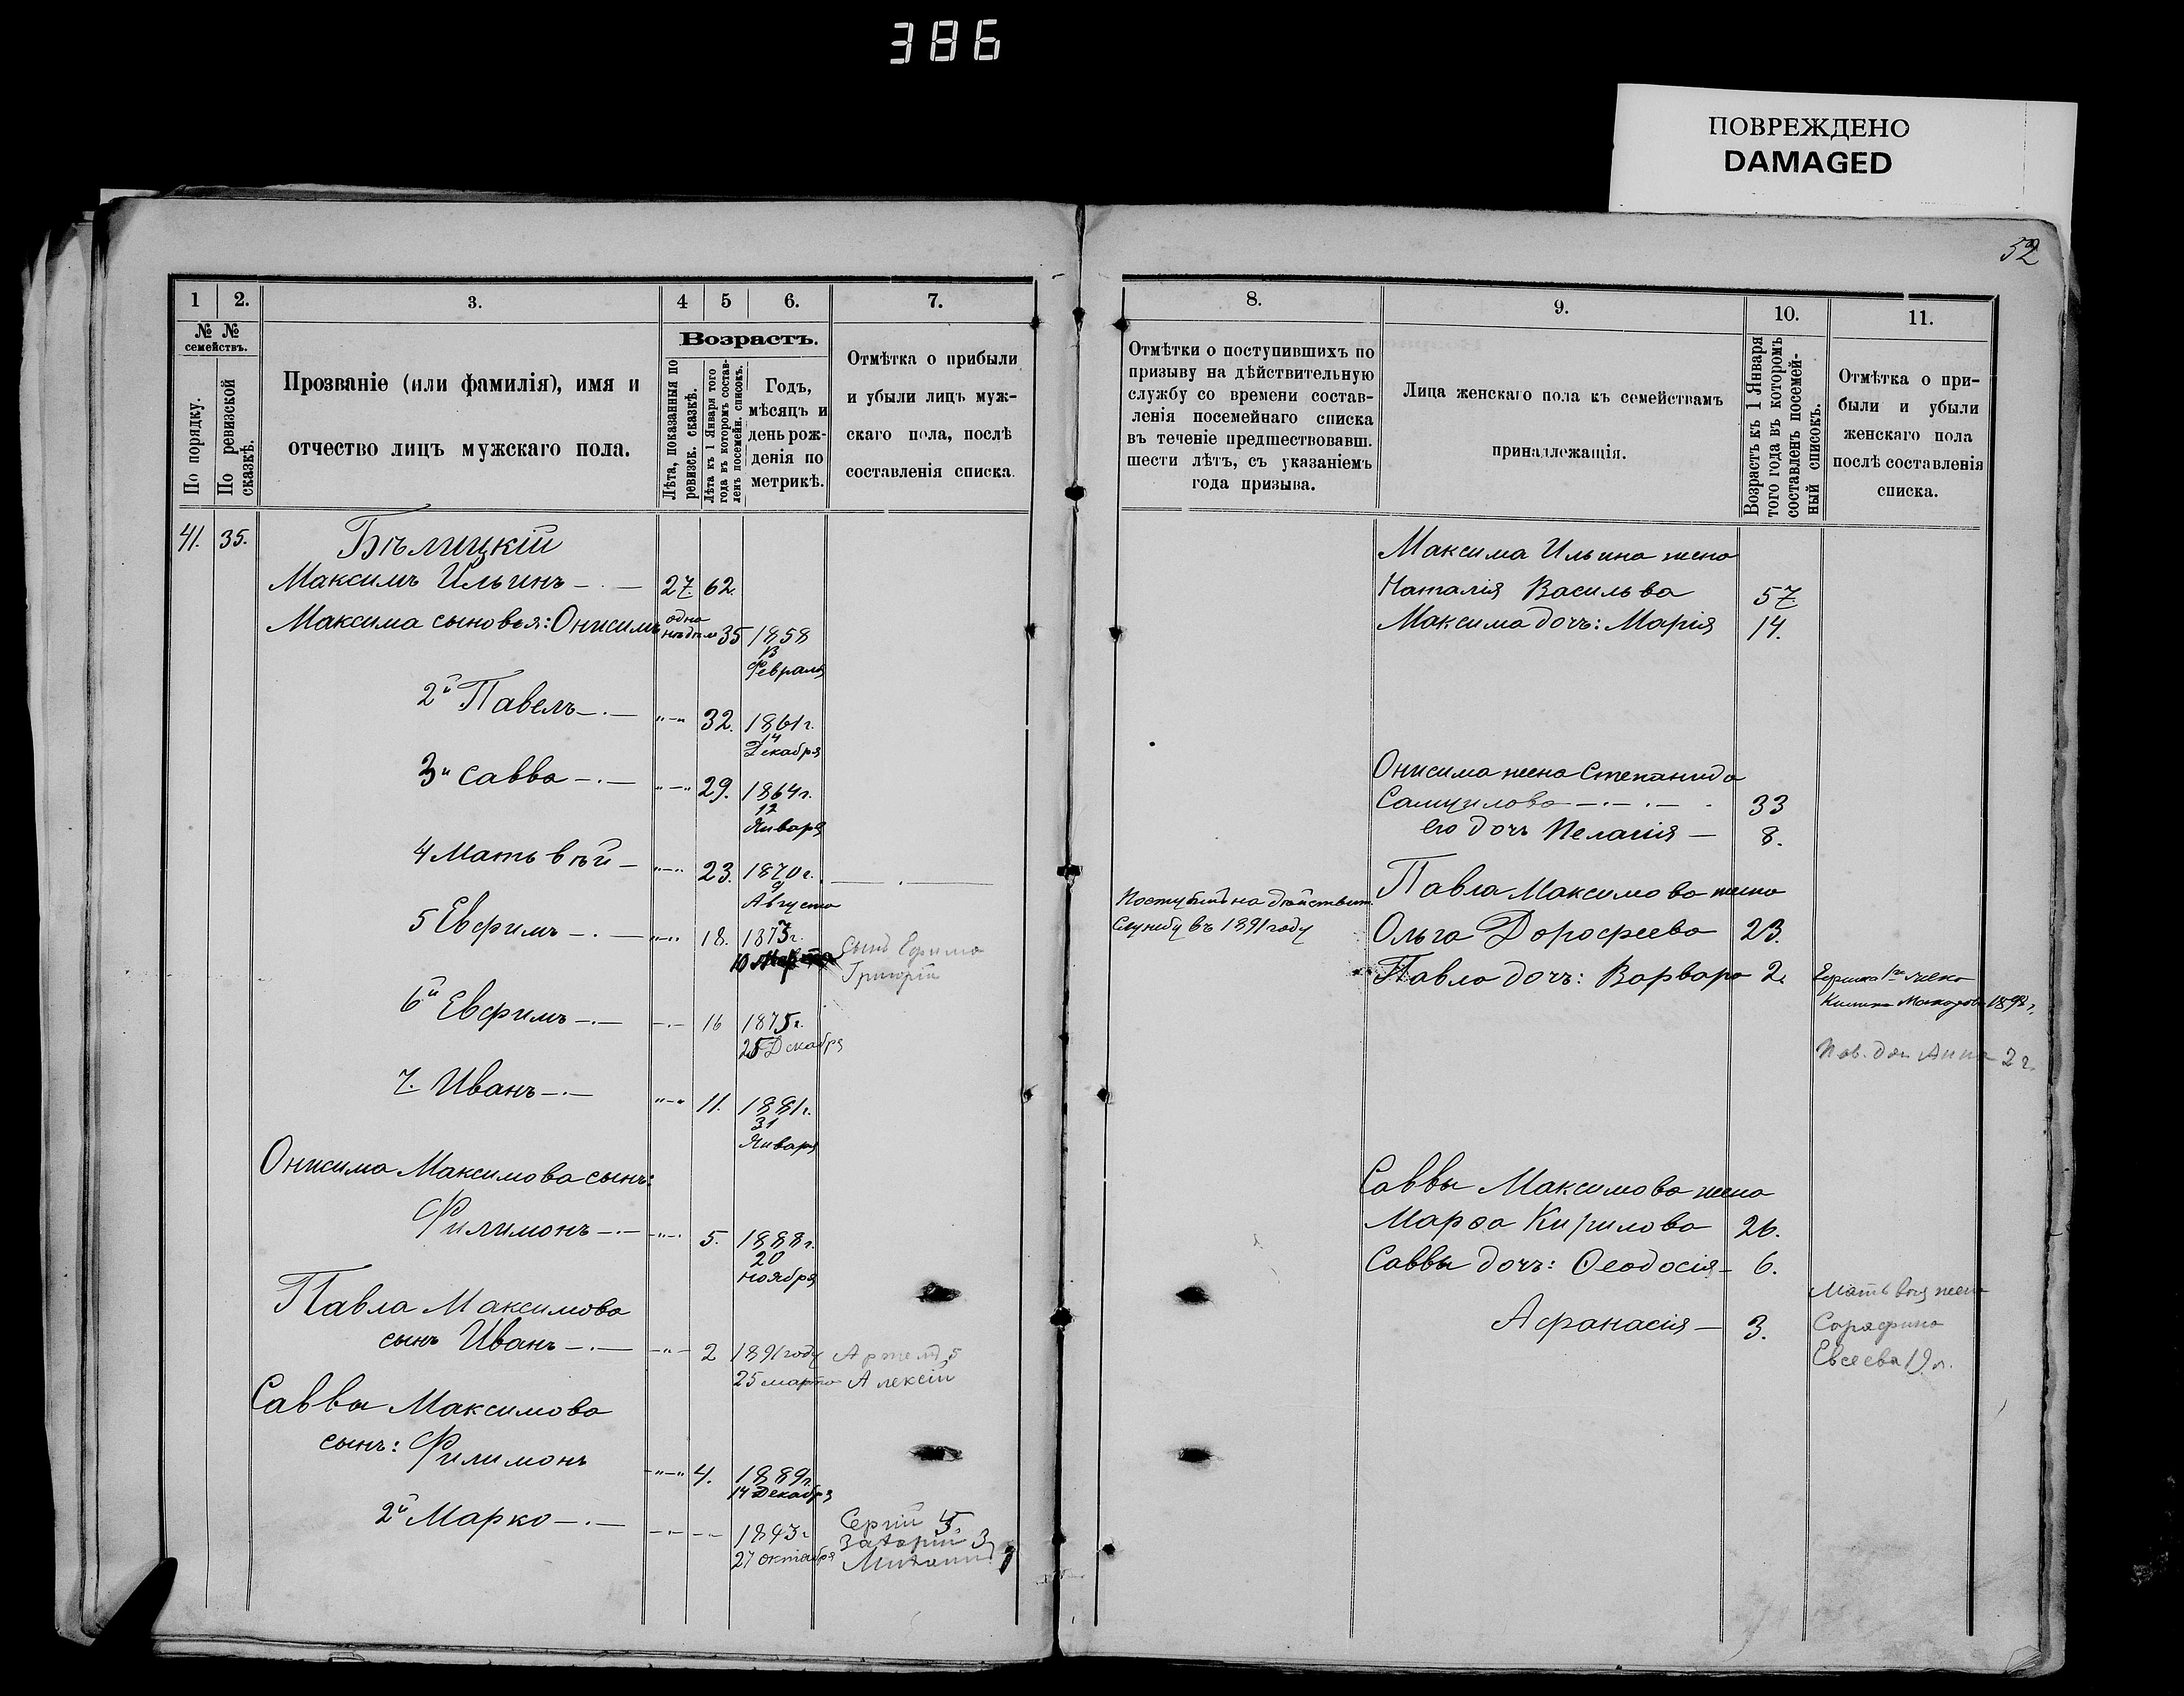 386
ПОВРЕЖДЕНО
DAMAGED
52
1
2.
3.
4
5
6.
7.
№ №
семействъ.
По порядку.
По ревизской
сказкѣ.
Прозваніе (или фамилія), имя и
отчество лицъ мужскаго пола.
Возрастъ.
Лѣта, показанныя по
ревизск. сказкѣ.
Лѣта къ 1 Января того
года въ которомъ состав-
ленъ посемейн. списокъ.
Годъ,
мѣсяцъ и
день рож-
денія по
метрикѣ.
Отмѣтка о прибыли
и убыли лицъ муж-
скаго пола, послѣ
составленія списка.
41. 35. Бѣлицкій
Максимъ Ильинъ 27. 62.
Максима сыновья: Онисимъ одна 35 1858
13
Февраля
2й Павелъ 32. 1861г.
14
Декабря
3й Савва 29. 1864г.
12
Января
4 Матьвѣй 23. 1870г.
9
Августа
5 Евфимъ 18. 1873г.
10 Марта
Сынъ Ефима
Григорій
6й Евфимъ 16 1875г.
25 Декабря
7. Иванъ 11. 1881г.
31
Января
Онисима Максимова сынъ:
Филимонъ 5. 1888г.
20
ноября
Павла Максимова
сынъ Иванъ 2 1891 году Артемъ 5
25 марта Алексій
Саввы Максимова
сынъ: Филимонъ 4. 1889г.
14 Декабря
2й Марко 1893г
27 октября
Сергій 5
Захарій 3
8.
9.
10.
11.
Отмѣтки о поступившихъ по
призыву на дѣйствительную
службу со времени состав-
ленія посемейнаго списка
въ теченіе предшествовавш.
шести лѣтъ, съ указаніемъ
года призыва.
Лица женскаго пола къ семействамъ
принадлежащія.
Возрастъ къ 1 Января
того года въ которомъ
составленъ посемей-
ный списокъ.
Отмѣтка о при-
были и убыли
женскаго пола
послѣ составленія
списка.
Максима Ильина жена
Наталія Васильва 57.
Максима дочъ: Марія 14.
Онисима жена Степанида
Самуилова 33
его дочъ Пелагія 8.
Поступилъ на дѣйствит.
Службу въ 1891 году
Павла Максимова жена
Ольга Дорофеева 23.
Павла дочъ: Варвара 2.
Ефима 1я жена
1898 г.
Пав. доч Анна 2 г.
Саввы Максимова жена
Марѳа Кирилова 26.
Саввы дочъ: Ѳеодосія 6.
Афанасія 3.
Матьвея жена
Сарафина
Евсеева 19 л.